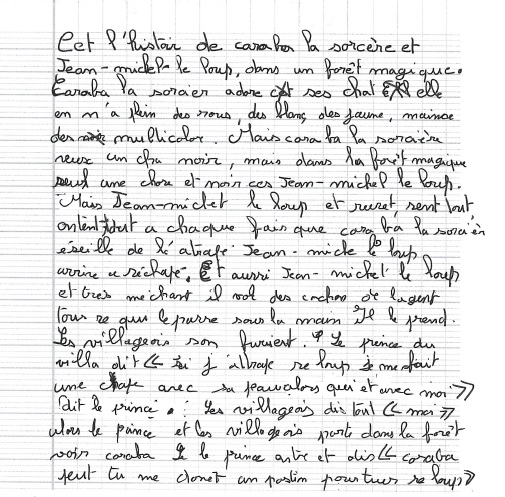 Cet l'histoir de caraba la sorcère et
Jean-michel le loup, dans un forêt magique.
Caraba la soraier adore ses chat elle
en n'a plein des rous, des blanc, des jaune, mainse
des multicolor. Mais caraba la sorcièrè
veux un cha noir, mais dans la forêt magique
seul une chose et noir ces Jean-michel le loup.
Mais Jean-michel le loup et ruzet, sent tout,
entent tout a chaque fais que caraba la sorcièr
eseille de l'atrape Jean-michel le loup
arrive a séchape. Et aussi Jean-michel le loup
et tres mechant il vol des cochon de l'agent
tous ce que le passe sous la main Il le prend.
Les villageois son furient. Le prince du
villa dit << Si j'attrape se loup je me fait
une chape avec sa peau alors qui et avec moi >>
dit le prince. : Les villageois dis tout << moi >>
alors le prince et les villageois parts dans la forêt
voir caraba le prince antre et dis << caraba
peut tu me donet un postin pour tuer se loup >>